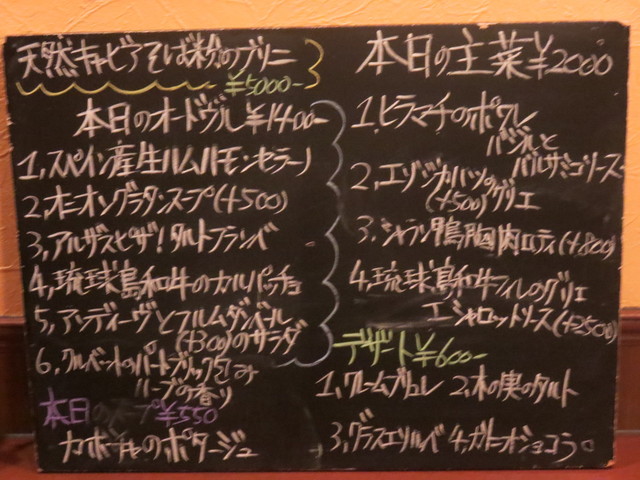 天然キャビアそば粉のブリニ
¥5000-
本日のオードヴル ¥1400-
1, スペイン産生ハムハモンセラーノ
2, オニオングラタンスープ(+500)
3, アルザスピザ!タルトフランベ
4, 琉球島和牛のカルパッチョ
5, アンディーヴとフルムダンベール
(+300)のサラダ
6. クルベットのパートブリック包み
ハーブの香り
本日のスープ ¥550
カボチャのポタージュ
本日の主菜 ¥2000
1. ヒラマチのポワレ
バジルと
バルサミコソース
2, エゾジカハツのグリエ
(+500)
3. シャラン鴨胸肉ロティ(+800)
4, 琉球島和牛フィレのグリエ
エシャロットソース(+2500)
デザート ¥600-
1, クレームブリュレ 2, 木の実のタルト
3, グラスエソルベ 4, ガトーオショコラ。